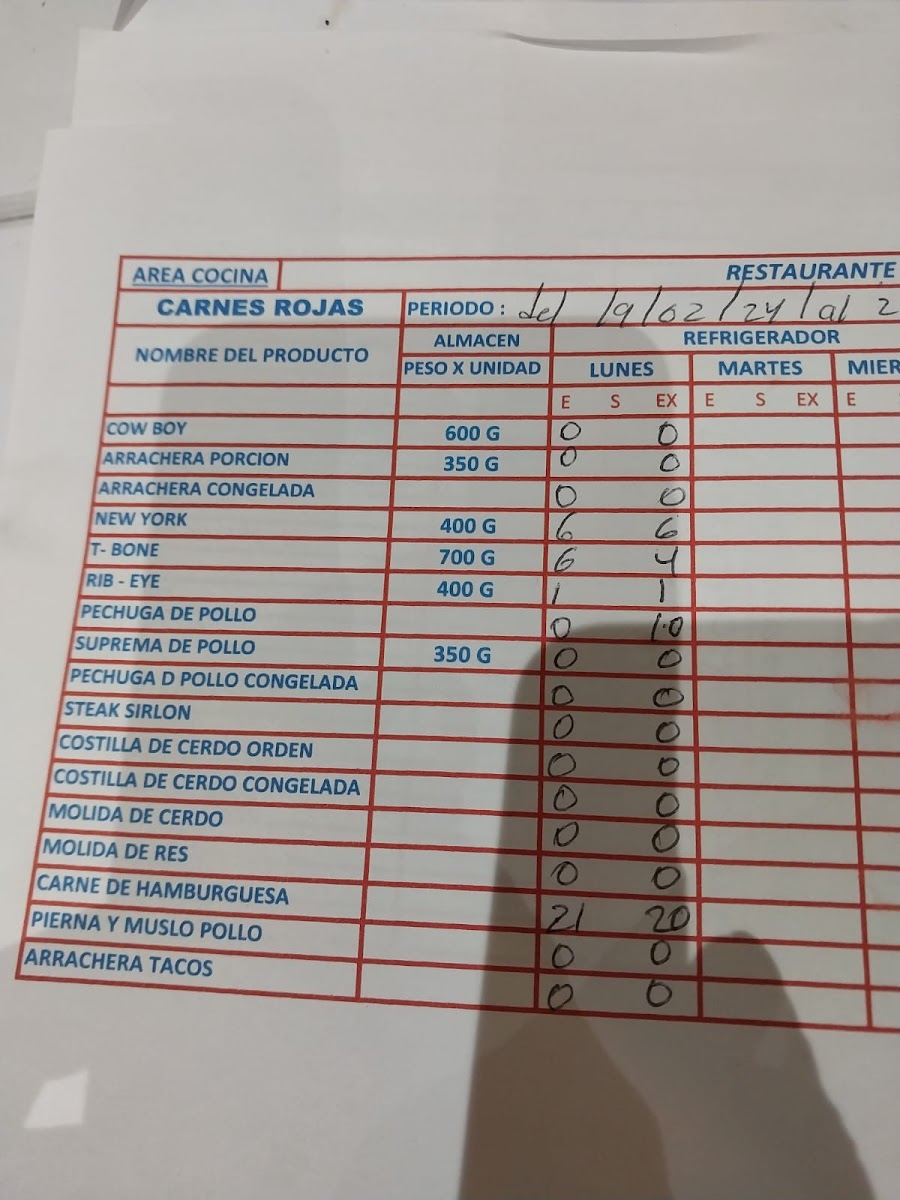 AREA COCINA RESTAURANTE
CARNES ROJAS PERIODO : del 19/02/24/al 2
NOMBRE DEL PRODUCTO ALMACEN REFRIGERADOR
PESO X UNIDAD LUNES MARTES MIER
E S EX E S EX E
COW BOY 600 G 0 0
ARRACHERA PORCION 350 G 0 0
ARRACHERA CONGELADA 0 0
NEW YORK 400 G 6 6
T- BONE 700 G 6 4
RIB - EYE 400 G 1 1
PECHUGA DE POLLO 0 1.0
SUPREMA DE POLLO 350 G 0 0
PECHUGA D POLLO CONGELADA 0 0
STEAK SIRLON 0 0
COSTILLA DE CERDO ORDEN 0 0
COSTILLA DE CERDO CONGELADA 0 0
MOLIDA DE CERDO 0 0
MOLIDA DE RES 0 0
CARNE DE HAMBURGUESA 21 20
PIERNA Y MUSLO POLLO 0 0
ARRACHERA TACOS 0 0